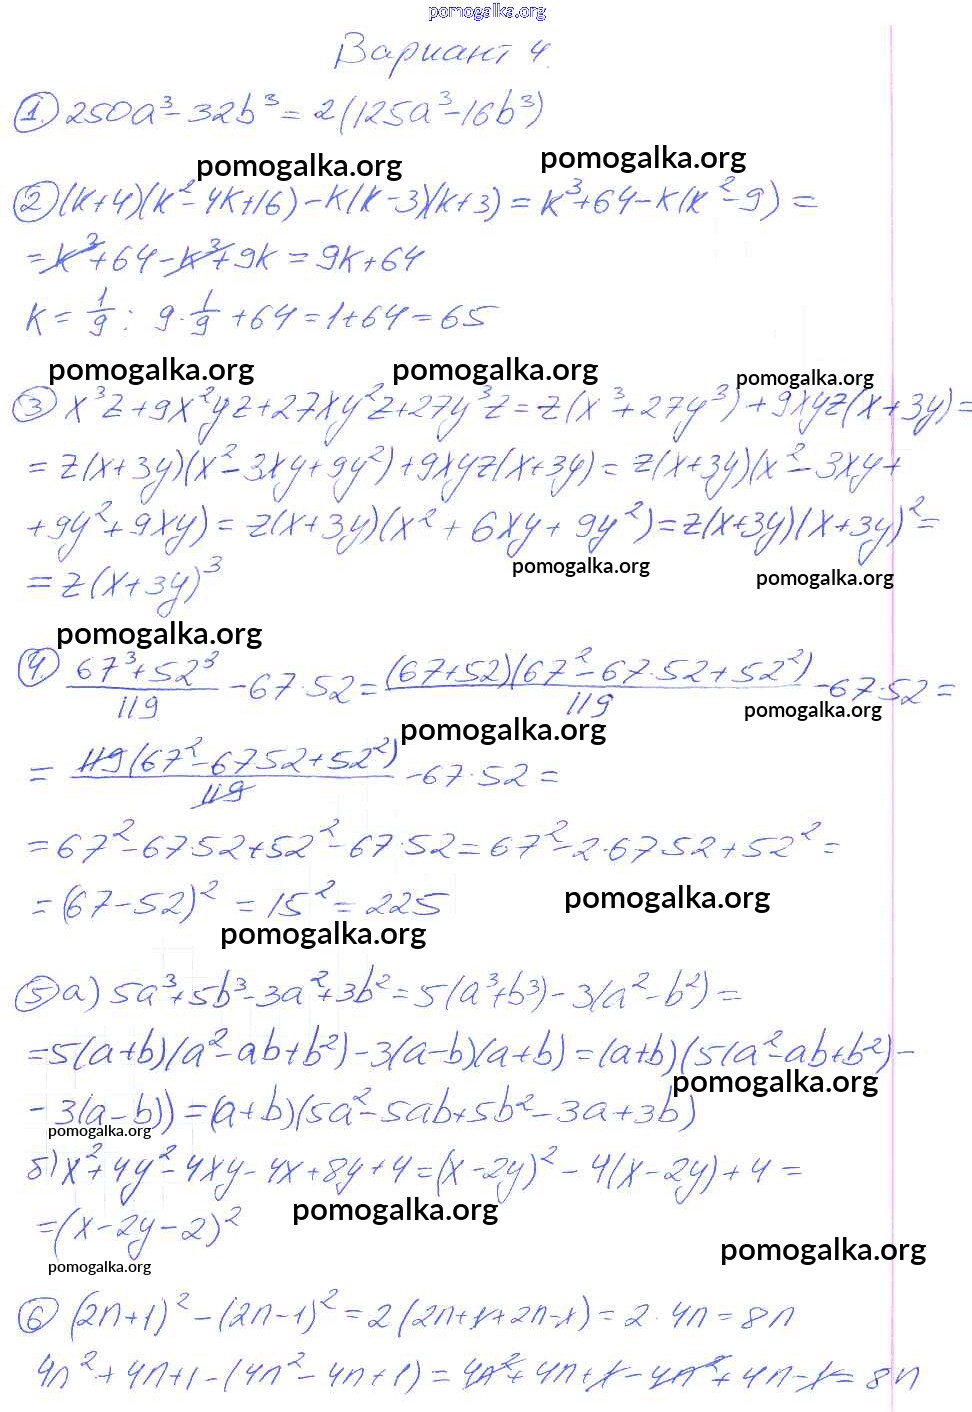 pomogalka.org
Вариант 4.
1. 250a³ - 32b³ = 2(125a³ - 16b³)
pomogalka.org pomogalka.org
2 (k+4)(k² - 4k+16) - k(k-3)(k+3) = k³+64 - k(k²-9) =
= k³+64 - k³+9k = 9k+64
k = 1/9 : 9·1/9 + 64 = 1+64 = 65
pomogalka.org pomogalka.org pomogalka.org
3 x³z + 9x²yz + 27xy²z + 27y³z = z(x³+27y³) + 9xyz(x+3y) =
= z(x+3y)(x² - 3xy + 9y²) + 9xyz(x+3y) = z(x+3y)(x² - 3xy +
+ 9y² + 9xy) = z(x+3y)(x² + 6xy + 9y²) = z(x+3y)(x+3y)² =
pomogalka.org pomogalka.org
= z(x+3y)³
pomogalka.org
4. (67³+52³)/119 - 67·52 = (67+52)(67² - 67·52 + 52²)/119 - 67·52 =
pomogalka.org pomogalka.org
= 119(67² - 67 52 + 52²)/119 - 67·52 =
= 67² - 67·52 + 52² - 67·52 = 67² - 2·67 52 + 52² =
= (67-52)² = 15² = 225
pomogalka.org
pomogalka.org
5 а) 5a³+5b³-3a²+3b² = 5(a³+b³) - 3(a²-b²) =
= 5(a+b)(a² - ab + b²) - 3(a-b)(a+b) = (a+b)(5(a² - ab + b²) -
pomogalka.org
- 3(a-b)) = (a+b)(5a² - 5ab + 5b² - 3a + 3b)
pomogalka.org
б) x²+4y²-4xy-4x+8y+4 = (x-2y)² - 4(x-2y) + 4 =
= (x-2y-2)²
pomogalka.org
pomogalka.org
pomogalka.org
6 (2n+1)² - (2n-1)² = 2(2n+1+2n-1) = 2·4n = 8n
4n² + 4n+1 - (4n² - 4n+1) = 4n²+4n+1 - 4n²+4n-1 = 8n